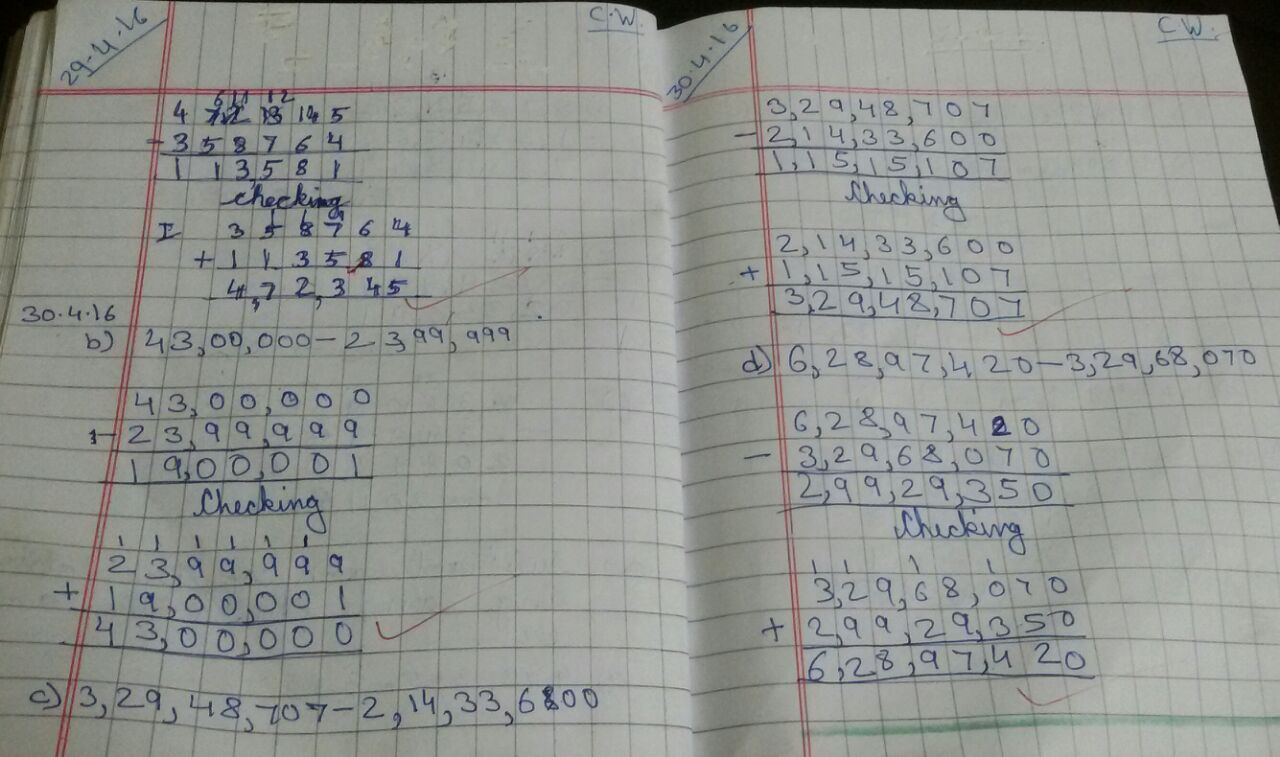 29.4.16
C.W.
6 11 12
4 7 2 13 14 5
- 3 5 8 7 6 4
1 1 3,5 8 1
Checking
I 3 5 8 7 6 4
+ 1 1 3 5 8 1
4,7 2,3 4 5
30.4.16
b) 43,00,000 - 23,99,999
43,00,000
- 23,99,999
19,00,001
Checking
1 1 1 1 1 1
23,99,999
+ 19,00,001
43,00,000
c) 3,29,48,707 - 2,14,33,600
30.4.16
C.W.
3,29,48,707
- 2,14,33,600
1,15,15,107
Checking
2,14,33,600
+ 1,15,15,107
3,29,48,707
d) 6,28,97,420 - 3,29,68,070
6,28,97,420
- 3,29,68,070
2,99,29,350
Checking
1 1 1 1
3,29,68,070
+ 2,99,29,350
6,28,97,420